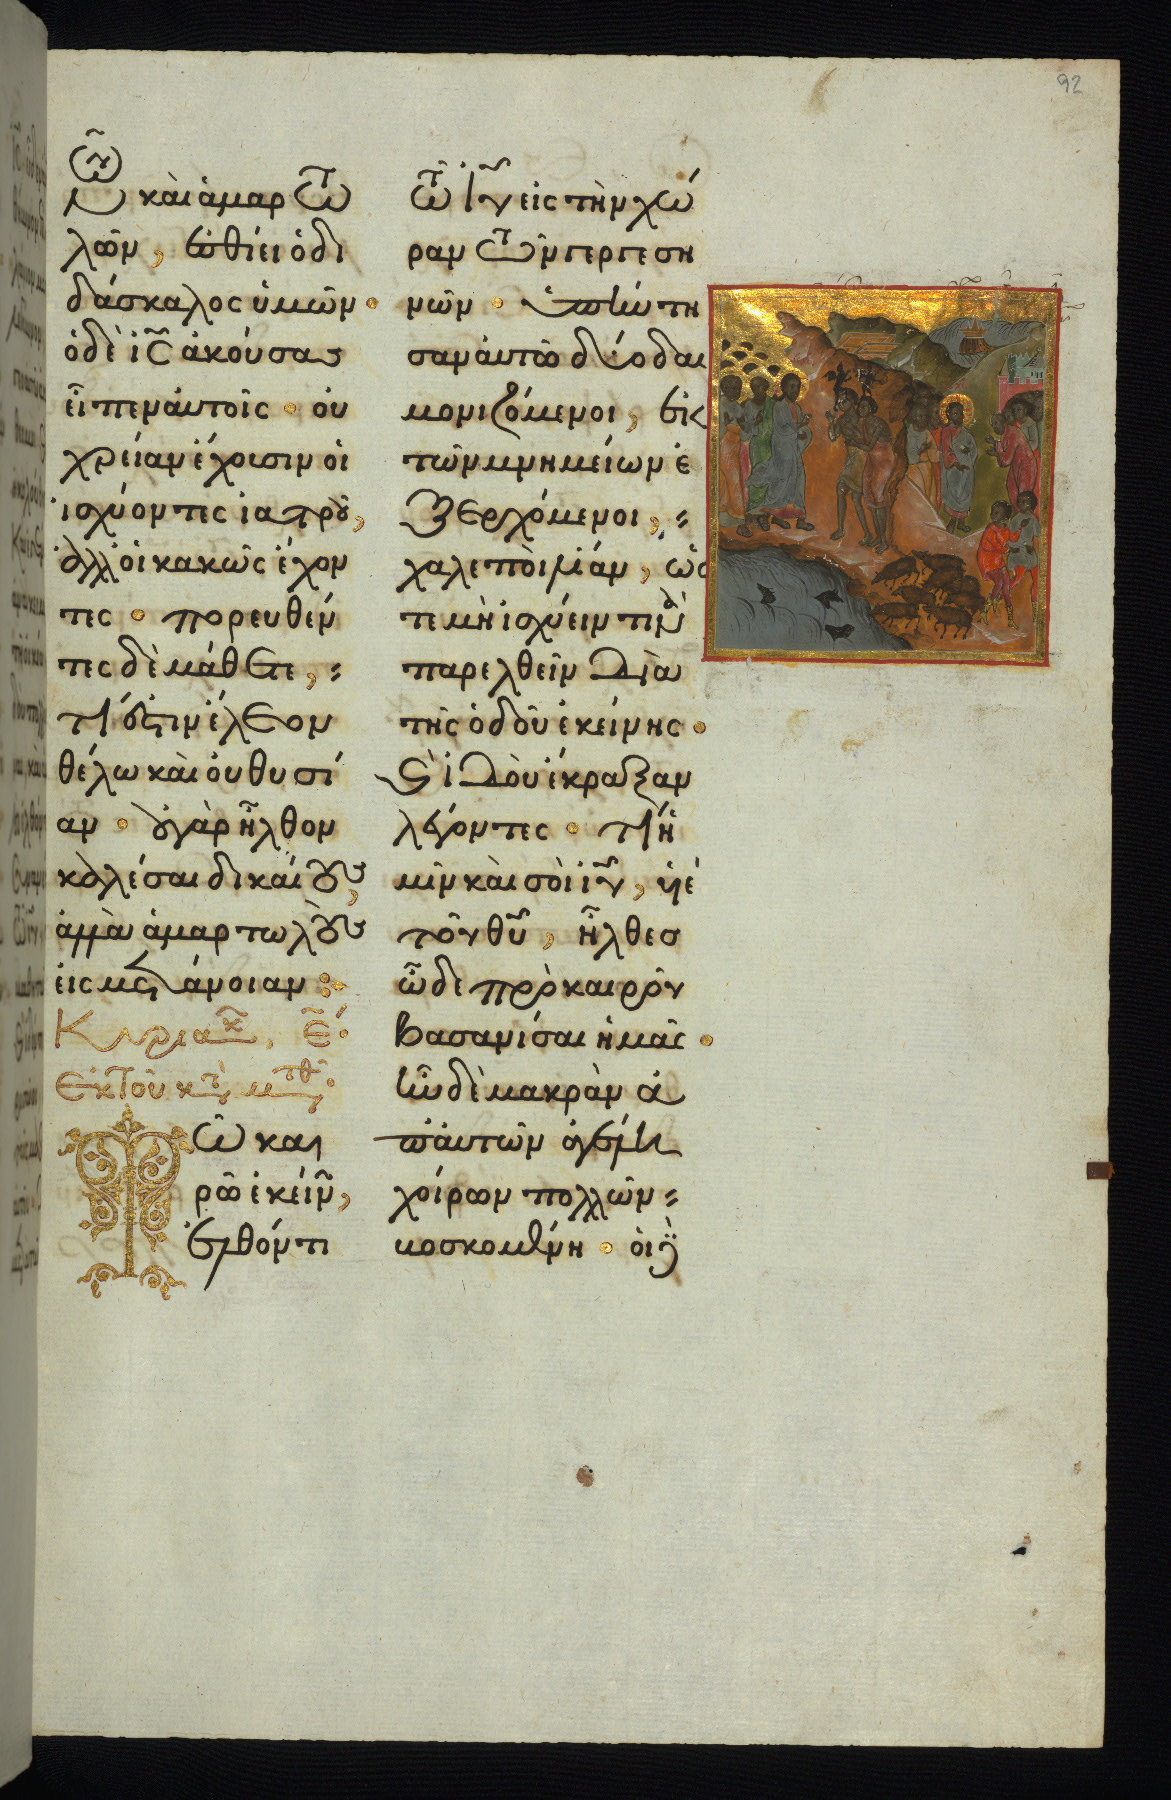 92
ῶν καὶ ἁμαρτω
λῶν, ἐσθίει ὁ δι
δάσκαλος ὑμῶν.
ὁ δὲ ἰς ἀκούσας
εἶπεν αὐτοῖς. οὐ
χρείαν ἔχουσιν οἱ
ἰσχύοντες ἰατροῦ,
ἀλλ' οἱ κακῶς ἔχον
τες. πορευθέν
τες δὲ μάθετε,
τί ἐστιν ἔλεον
θέλω καὶ οὐ θυσί
αν. οὐ γὰρ ἦλθον
καλέσαι δικαίους,
ἀλλὰ ἁμαρτωλοὺς
εἰς μετάνοιαν:
Κυριακ. ε.
Ἐκ τοῦ κτ μτθ.
Τῶ και
ρῶ ἐκείν,
ἐλθόντι
τῶ ιυ εἰς τὴν χώ
ραν τῶν γεργεση
νῶν. ὑπήντη
σαν αὐτῶ δύο δαι
μονιζόμενοι, ἐκ
τῶν μνημείων ἐ
ξερχόμενοι,
χαλεποὶ λίαν, ὡς
τε μὴ ἰσχύειν τινὰ
παρελθεῖν διὰ
τῆς ὁδοῦ ἐκείνης.
καὶ ἰδοὺ ἔκραξαν
λέγοντες. τί ἡ
μῖν καὶ σοὶ ιυ, υἱὲ
τοῦ θυ, ἦλθες
ὧδε πρὸ καιροῦ
βασανίσαι ἡμᾶς.
ἦν δὲ μακρὰν ἀ
π' αὐτῶν ἀγέλη
χοίρων πολλῶν
βοσκομένη. οἱ δὲ